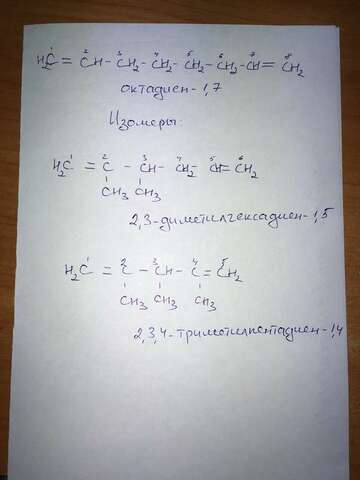 H₂C¹ = ²CH - ³CH₂ - ⁴CH₂ - ⁵CH₂ - ⁶CH₂ - ⁷CH = ⁸CH₂
октадиен-1,7
Изомеры:
H₂C¹ = ²C - ³CH - ⁴CH₂ - ⁵CH = ⁶CH₂
CH₃ CH₃
2,3-диметилгексадиен-1,5
H₂C¹ = ²C - ³CH - ⁴C = ⁵CH₂
CH₃ CH₃ CH₃
2,3,4-триметилпентадиен-1,4